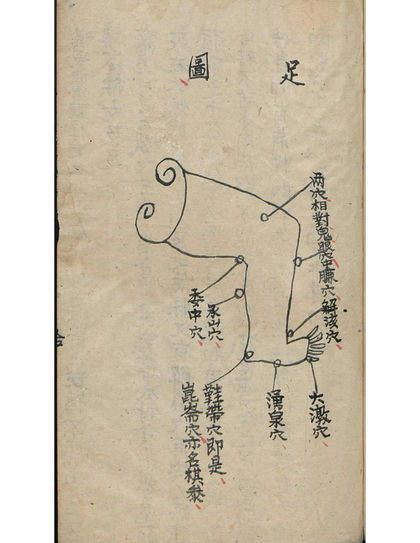 足圖
兩穴相對鬼眼穴中臁穴
解溪穴
委中穴
承山穴
大敦穴
湧泉穴
鞋帶穴即是
崑崙穴亦名棋